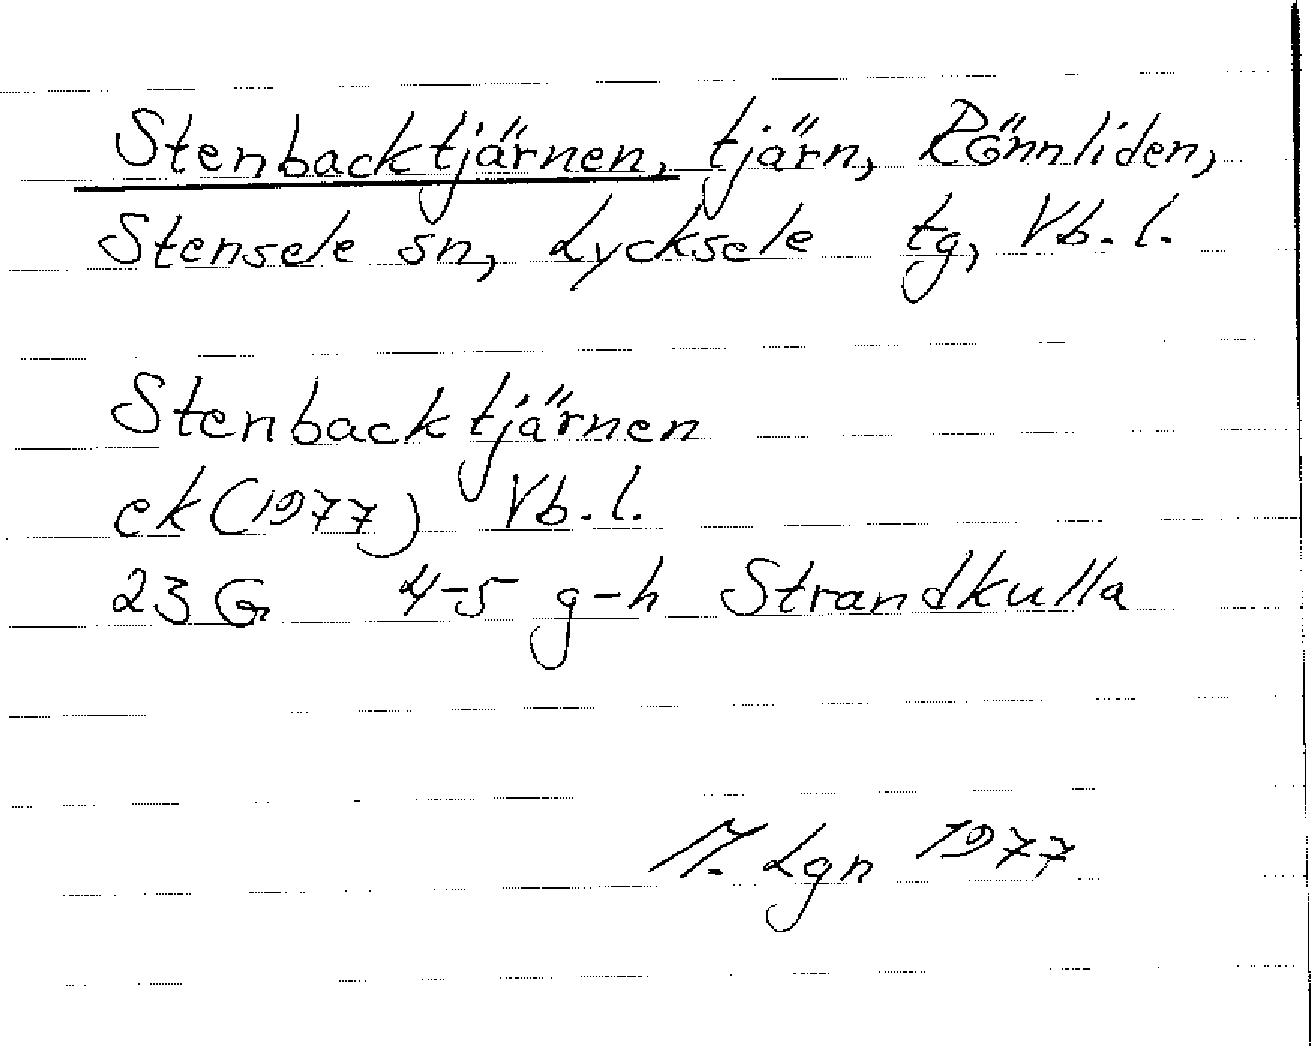 Stenbacktjärnen, tjärn, Rönnliden,
Stensele sn, Lycksele tg, Vb. l.
Stenbacktjärnen
ek (1977) Vb. l.
23 G 4-5 g-h Strandkulla
M. Lgn 1977